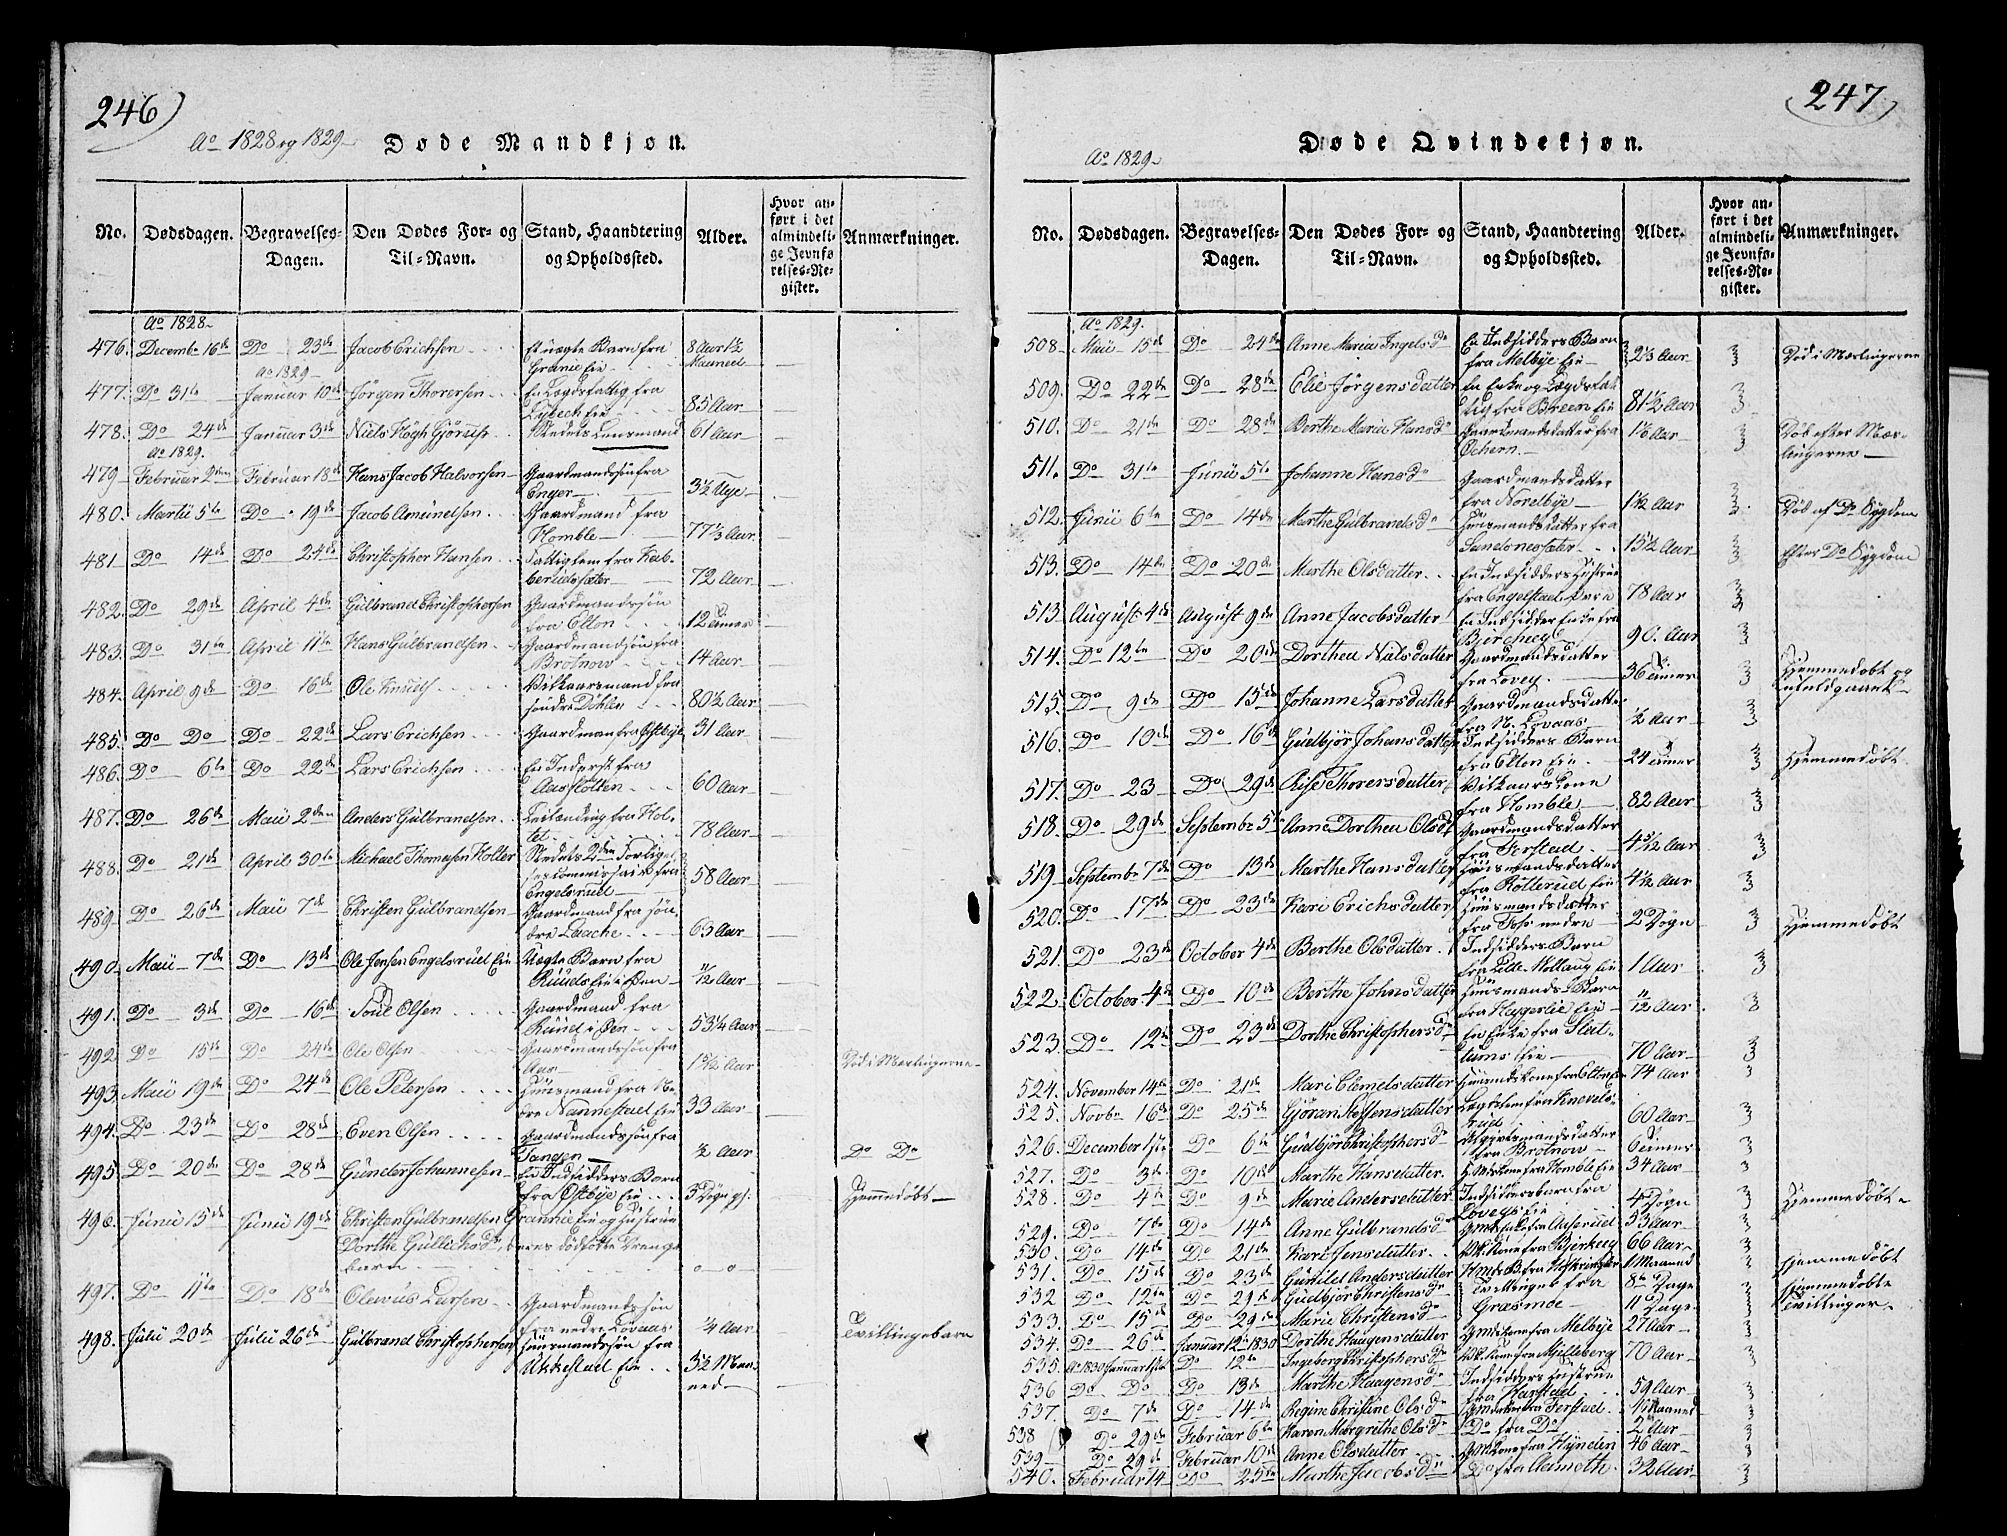 246)
Ao 1828 og 1829
Døde Mandkjøn.
No.
Dødsdagen.
Begravelses-Dagen.
Den Dødes For- og Til-Navn.
Stand, Haandtering og Opholdssted.
Alder.
Hvor anført i det almindelige Jevnførelses-Register.
Anmærkninger.
Ao 1828
476. Decembr 16de Do 23de Jacob Erichsen Et uægte Barn fra Eie 8 Aar 1½ Maaned
Ao 1829
477. Do 31te Januar 10de Jørgen Thorersen En Lægdsfattig fra Lybech Eie 85 Aar
478. Do 24de Januar 3de Niels Høgh Stedets Lensmand 61 Aar
Ao 1829.
479 Februar 2den Februar 18de Hans Jacob Halvorsen Gaardmandsøn fra Enger 3½ Uge
480. Martii 5te Do 19de Jacob Amundsen Gaardmand fra Homble 77⅓ Aar
481 Do 14de Do 24de Christopher Hansen Fattiglem fra 72 Aar
482. Do 29de April 4de Gulbrand Christophersen Gaardmandssøn fra Elton 12 Uger
483. Do 31te April 11te Hans Gulbrandsen Gaardmandsøn fra Brotnow 14 Aar
484. April 9de Do 16de Ole Knuds Vilkaarsmand fra søndre Døhlen 80½ Aar
485. Do Do Do 22de Lars Erichsen Gaardman fra Østbye 31 Aar
486. Do 6te Do 22de Lars Erichsen En Inderst fra Aasstolten 60 Aar
487. Do 26de Maii 2den Anders Gulbrandsen fra Holtet 78 Aar
488. Do 21de April 30te Michael Thomesen Holter Stedets 2den Forligelsescommissair fra Engelsrud 58 Aar
489. Do 26de Maii 7de Christen Gulbrandsen Gaardmand fra søndre Laache 63 Aar
490. Maii 7de Do 13de Ole Jensen Engelsrud Eie Uægte Barn fra Ruuds Eie i Øen 11/12 Aar
491. Do 3de Do 16de Poul Olsen Gaardmand fra Ruud i Øen 53¼ Aar
492. Do 15de Do 24de Ole Olsen Gaardmandssøn fra Aas Aar Død i Mæslingerne
493. Maii 19de Do 24de Ole Petersen Huusmand fra Nedre Nannestad Eie 33 Aar
494. Do 23de Do 28de Even Olsen Gaardmandssøn fra Tangen ½ Aar Do Do
495. Do 20de Do 28de Gunder Johannesen En Indsidders Barn fra Østbye Eie 5 Døgn Hjemmedøbt
496. Junii 15de Junii 19de Christen Gulbrandsen Eie og Hustrue Dorthe Gullichsdr, deres dødfødte Drengebarn o o
497. Do 11te Do 18de Olevus Larsen Gaardmandssøn fra nedre Løvaas ¼ Aar
498. Julii 20de Julii 26de Gulbrand Christophersen Huusmandssøn fra Ukkestad Eie 3½ Maaned Tvillingebarn
247)
Ao 1829
Døde Qvindekjøn.
No.
Dødsdagen.
Begravelses-Dagen.
Den Dødes For- og Til-Navn.
Stand, Haandtering og Opholdssted.
Alder.
Hvor anført i det almindelige Jevnførelses-Register.
Anmærkninger.
Ao 1829.
508. Maii 15de Do 24de Anne Maria Ingelsdr En Indsidders Barn fra Melbye Eie 2⅓ Aar 3 Død i Mæslingerne
509. Do 22de Do 28de Elie Jørgensdatter En Enke og Lægdsfattig fra Breen Eie 81½ Aar 3
510. Do 21de Do 28de Berthe Maria Hansdr Gaardmandsdatter fra Ochern 3 Død efter Mæslingerne
511. Do 31te Junii 5te Johanne Hansdr Gaardmandsdatter fra Nordbye 1½ Aar 3
512. Junii 6te Do 14de Marthe Gulbrandsdr Huusmandsdatter fra 15½ Aar 3 Død af Do Sygdom
513. Do 14de Do 20de Marthe Olsdatter En Indsidders Hustrue fra Engelstad 78 Aar 3 Efter Do Sygdom
513 August 4de August 9de Anne Jacobsdatter En Indsidder Enke fra Bircheey 90 Aar 3
514. Do 12te Do 20de Dorthea Nielsdatter Gaardmandsdatter fra Lovey 36 Uger 3 Hjemmedøbt og
515. Do 9de Do 15de Johanne Larsdatter Gaardmandsdatter fra N. Lovaas ½ Aar 3
516. Do 10de Do 16de Gudbjør Johansdatter Indsidders Barn fra Elton Eie 24 Timer 3 Hjemmedøbt
517. Do 23 Do 29de Thorersdatter Vilkaarskone fra Homble 82 Aar 3
518. Do 29de Septembr 5te Anne Dorthea Olsdr Gaardmandsdatter fra Ferstad Aar 3
519 Septembr 7de Do 13de Marthe Hansdatter Huusmandsdatter fra Rotterud Eie 4½ Aar 3
520. Do 17de Do 23de Kari Erichsdatter Huusmandsdatter fra nedre 2 Døgn 3 Hjemmedøbt
521. Do 23de October 4de Berthe Olsdatter Indsidders Barn fra Lille Eie 1 Aar 3
522. October 4de Do 10de Berthe Johnsdatter Huusmands Barn fra Hagerlie Eie 11/12 Aar 3
523. Do 12te Do 23de Dorthe Christophersdr En Enke fra Slattums Eie 70 Aar 3
524. November 14de Do 21de Mari Clemetsdatter Huusmdskone fra Elton Eie 74 Aar 3
525. Novbr 16de Do 25de Gjøran Steffensdatter Lægdslem fra Knevelsrud 60 Aar 3
526. December 1ste Do 6te Gudbjør Christophersdr Gaardmandsdatter fra Brotnow 6 Timer 3
527. Do 3de Do 10de Marthe Hansdatter Kone fra Homble Eie 34 Aar 3
528. Do 4de Do 9de Marie Andersdatter Indsidersbarn fra Loveys Eie 4 Døgn 3 Hjemmedøbt
529. Do 7de Do 14de Anne Gulbrandsdr fra Aaserud 53 Aar 3
530. Do 14de Do 21de Kari Jensdatter Kone fra Bjerkeey 66 Aar 3
531. Do 15de Do 23de Gunild Andersdatter 1 Maaned 3 Hjemmedøbt
532 Do 12te Do 29de Gudbjør Christensdr Tvillinger fra 8te Dage 3 Hjemmedøbte
533. Do 15de Do 29de Marie Christensdr Græsmoe 11 Dage 3 Tvillinger
534. Do 26de Januar 12te 1830 Dorthe Haagensdr Kone fra Melbye 27 Aar 3
535. Ao 1830 Januar 1ste Do 12te Ingeborg Christophersdr Kone fra Mølleberg 70 Aar 3
536 Do Do Do 13de Marthe Haagensdr Indsidders Hustrue fra Harstad 59 Aar 3
537. Do 7de Do 14de Regine Christine Olsdr fra Ferstad Maaned 3
538 Do 29de Februar 6te Karen Margrethe Olsdr Do fra Do 2 Aar 3
539 Do 29de Februar 10de Anne Olsdatter Kone fra Hynden 46 Aar 3
540. Februar 14 Do 25de Marthe Jacobsdr Do fra Aamoth 32 Aar 3